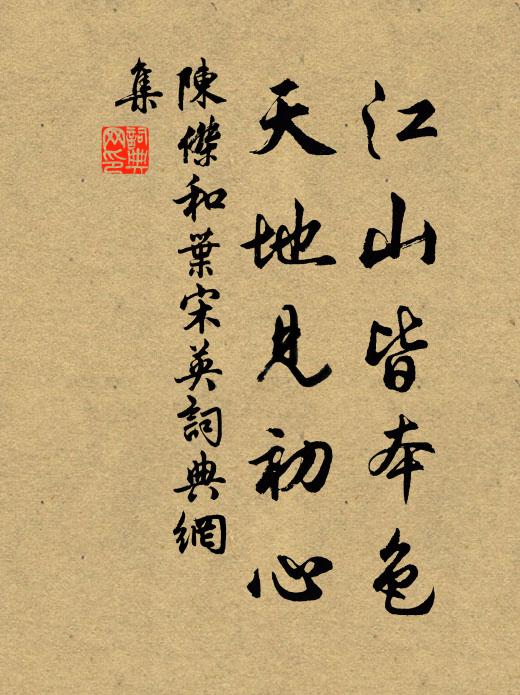 江山皆本色
天地見初心
陳傑和葉宋英詞典網
集
詞典
网印